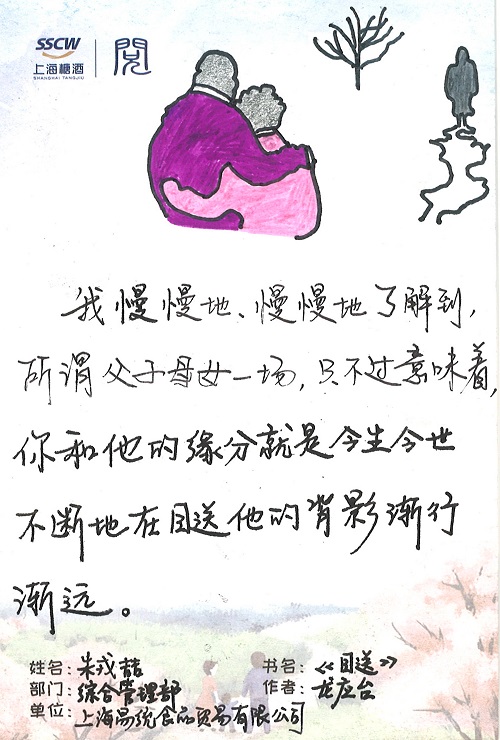 SSCW
上海糖酒
SHANGHAI TANGJIU
閲
我慢慢地、慢慢地了解到,
所谓父子母女一场,只不过意味着,
你和他的缘分就是今生今世
不断地在目送他的背影渐行
渐远。
姓名: 朱戎喆
书名: 《目送》
部门: 综合管理部
作者: 龙应台
单位: 上海易统食品贸易有限公司